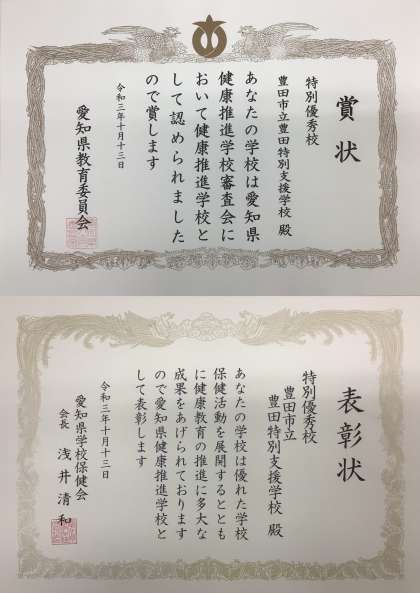 賞状
特別優秀校
豊田市立豊田特別支援学校 殿
あなたの学校は愛知県
健康推進学校審査会に
おいて健康推進学校と
して認められました
ので賞します
令和三年十月十三日
愛知県教育委員会
表彰状
特別優秀校
豊田市立
豊田特別支援学校 殿
あなたの学校は優れた学校
保健活動を展開するととも
に健康教育の推進に多大な
成果をあげられております
ので愛知県健康推進学校と
して表彰します
令和三年十月十三日
愛知県学校保健会
会長 浅井清和